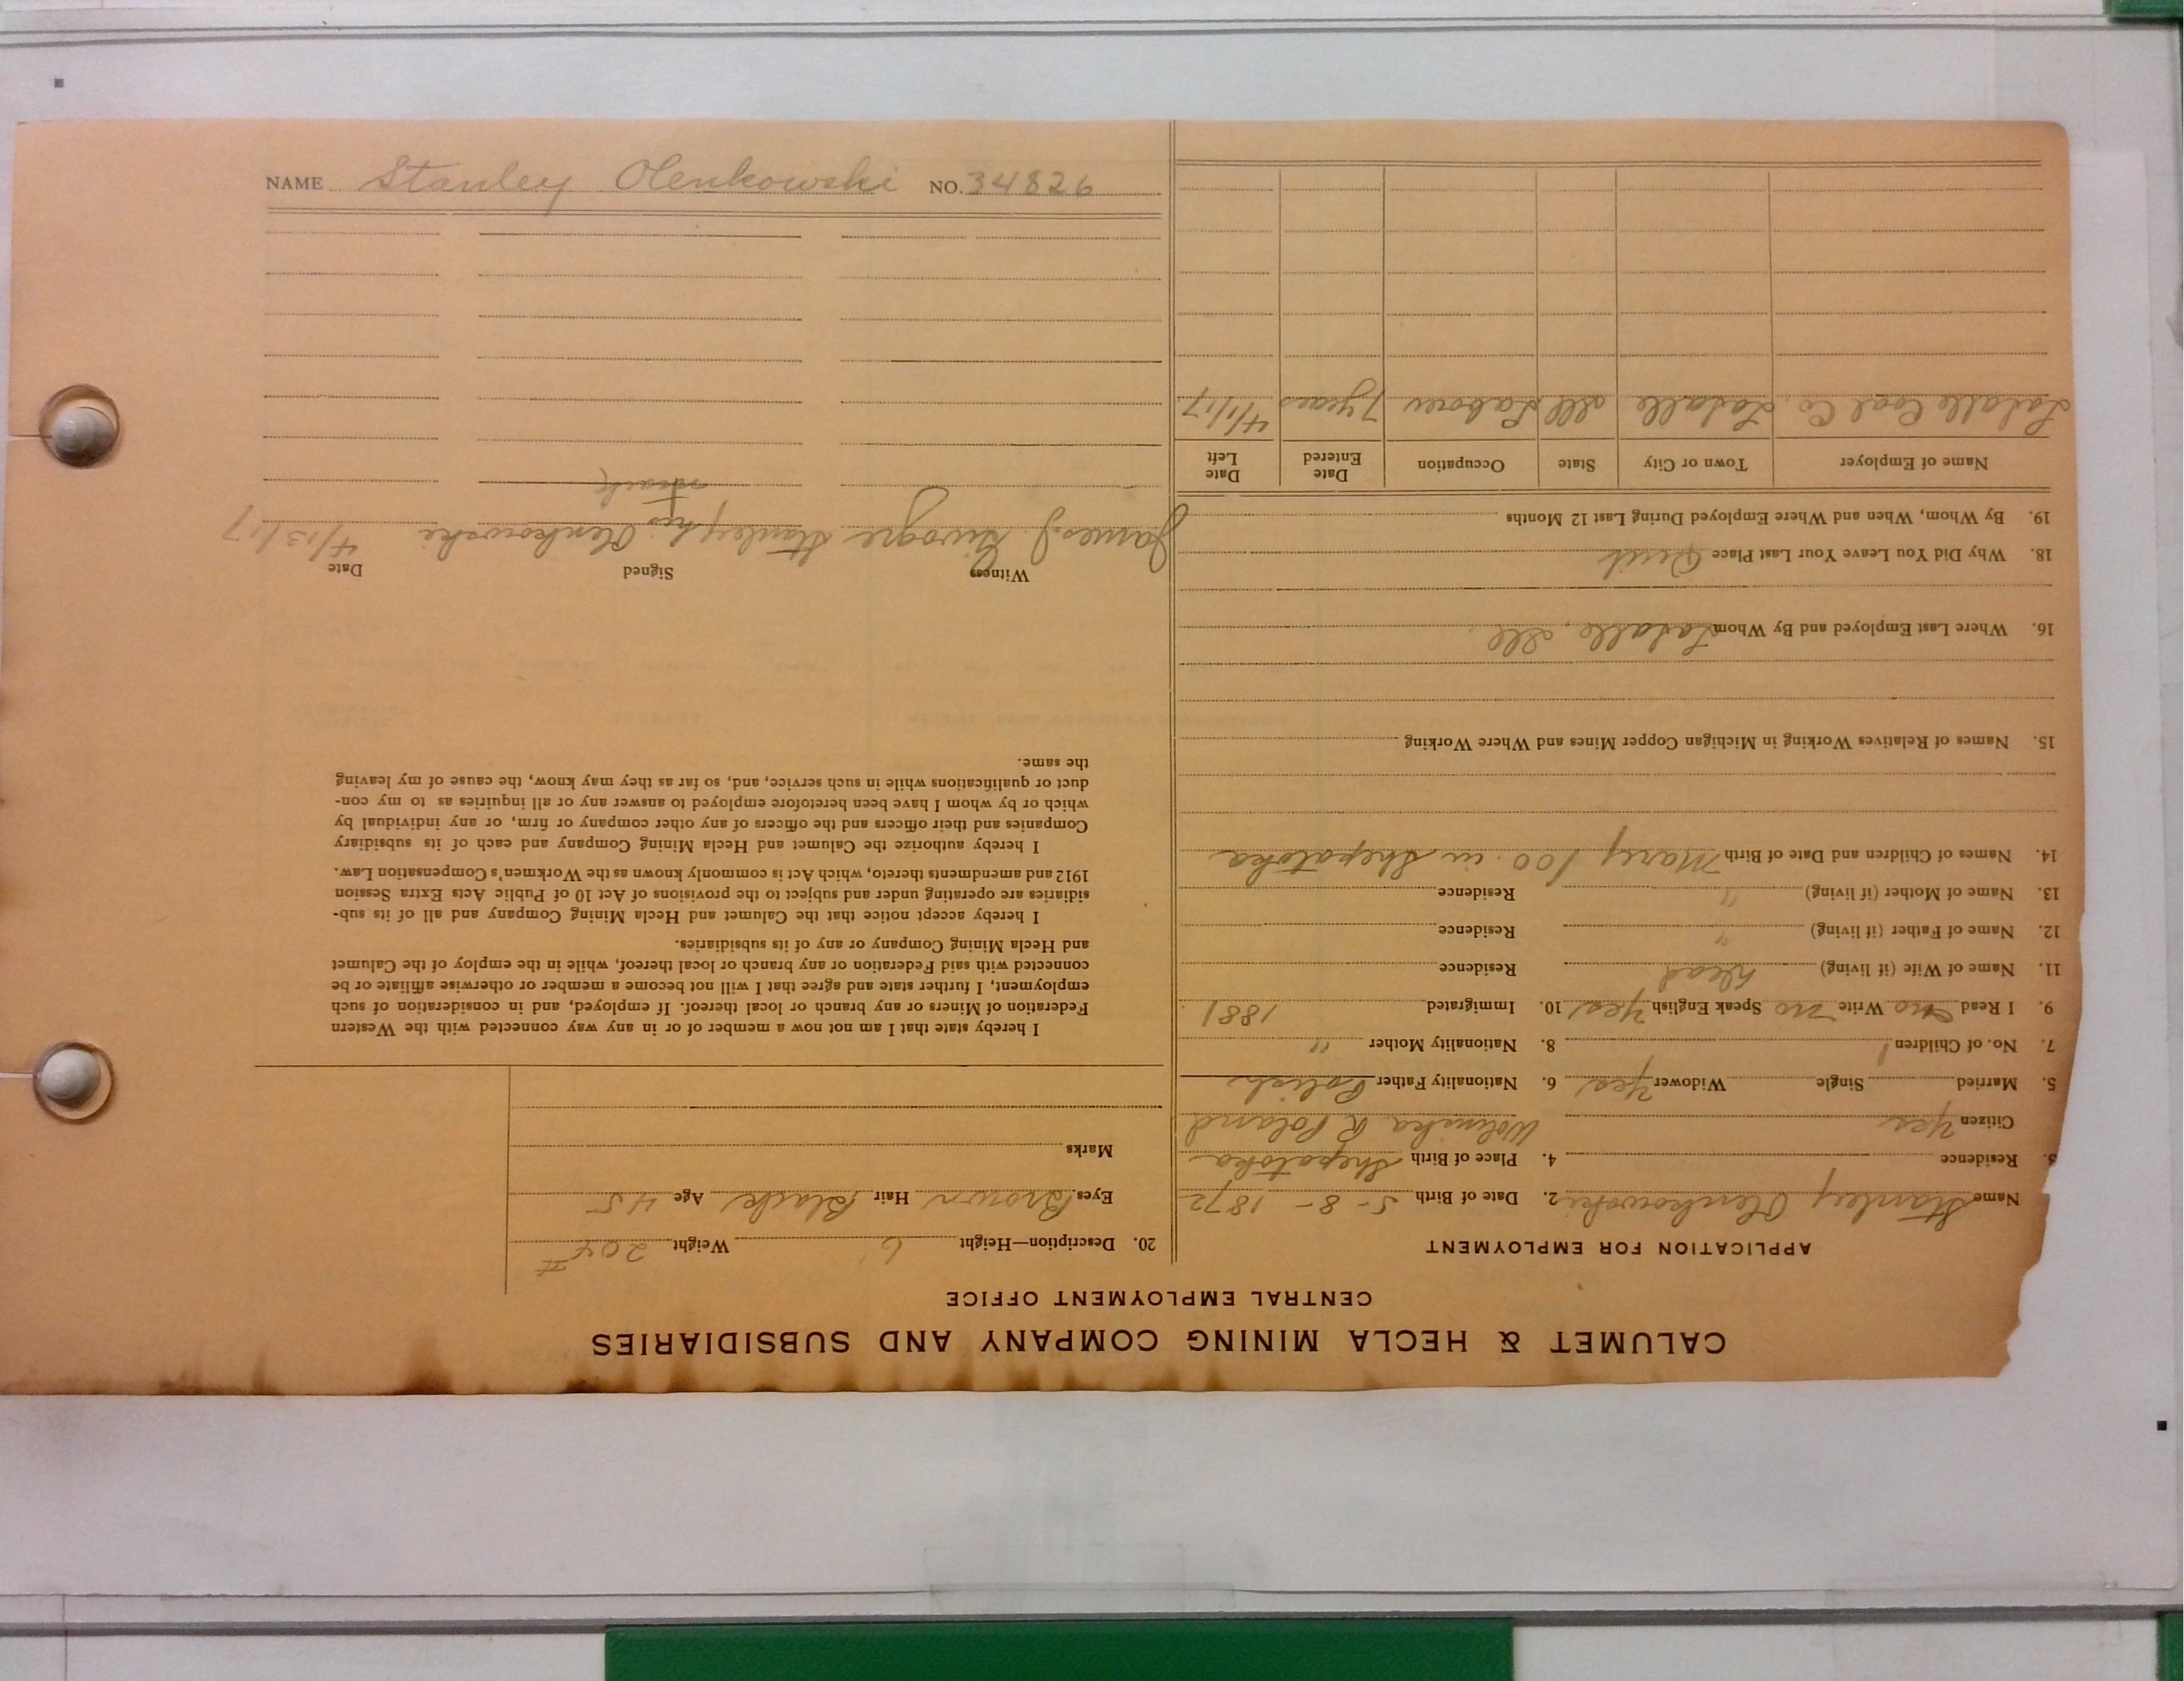 NAME Stanley Olenkowski NO. 34826
CALUMET & HECLA MINING COMPANY AND SUBSIDIARIES
CENTRAL EMPLOYMENT OFFICE
APPLICATION FOR EMPLOYMENT
Name Stanley Olenkowski 2. Date of Birth 5-8-1872
3. Residence 4. Place of Birth Shepatoka
Citizen Yes R Poland
5. Married Single Widower Yes 6. Nationality Father Polish
7. No. of Children 1 8. Nationality Mother "
9. I Read no Write no Speak English Yes 10. Immigrated 1881
11. Name of Wife (if living) Dead Residence
12. Name of Father (if living) " Residence
13. Name of Mother (if living) " Residence
14. Names of Children and Date of Birth Mary 100 in Shepatoka
15. Names of Relatives Working in Michigan Copper Mines and Where Working
16. Where Last Employed and By Whom LaSalle, Ill
18. Why Did You Leave Your Last Place Quit
19. By Whom, When and Where Employed During Last 12 Months
Name of Employer Town or City State Occupation Date Entered Date Left
LaSalle Coal Co. LaSalle Ill Laborer 7 years 4/1/17
20. Description—Height 6' Weight 204 #
Eyes Brown Hair Black Age 45
Marks
I hereby state that I am not now a member of or in any way connected with the Western
Federation of Miners or any branch or local thereof. If employed, and in consideration of such
employment, I further state and agree that I will not become a member or otherwise affiliate or be
connected with said Federation or any branch or local thereof, while in the employ of the Calumet
and Hecla Mining Company or any of its subsidiaries.
I hereby accept notice that the Calumet and Hecla Mining Company and all of its sub-
sidiaries are operating under and subject to the provisions of Act 10 of Public Acts Extra Session
1912 and amendments thereto, which Act is commonly known as the Workmen's Compensation Law.
I hereby authorize the Calumet and Hecla Mining Company and each of its subsidiary
Companies and their officers and the officers of any other company or firm, or any individual by
which or by whom I have been heretofore employed to answer any or all inquiries as to my con-
duct or qualifications while in such service, and, so far as they may know, the cause of my leaving
the same.
Witness Signed Date
James J. Stanley his Olenkowski 4/13/17
mark